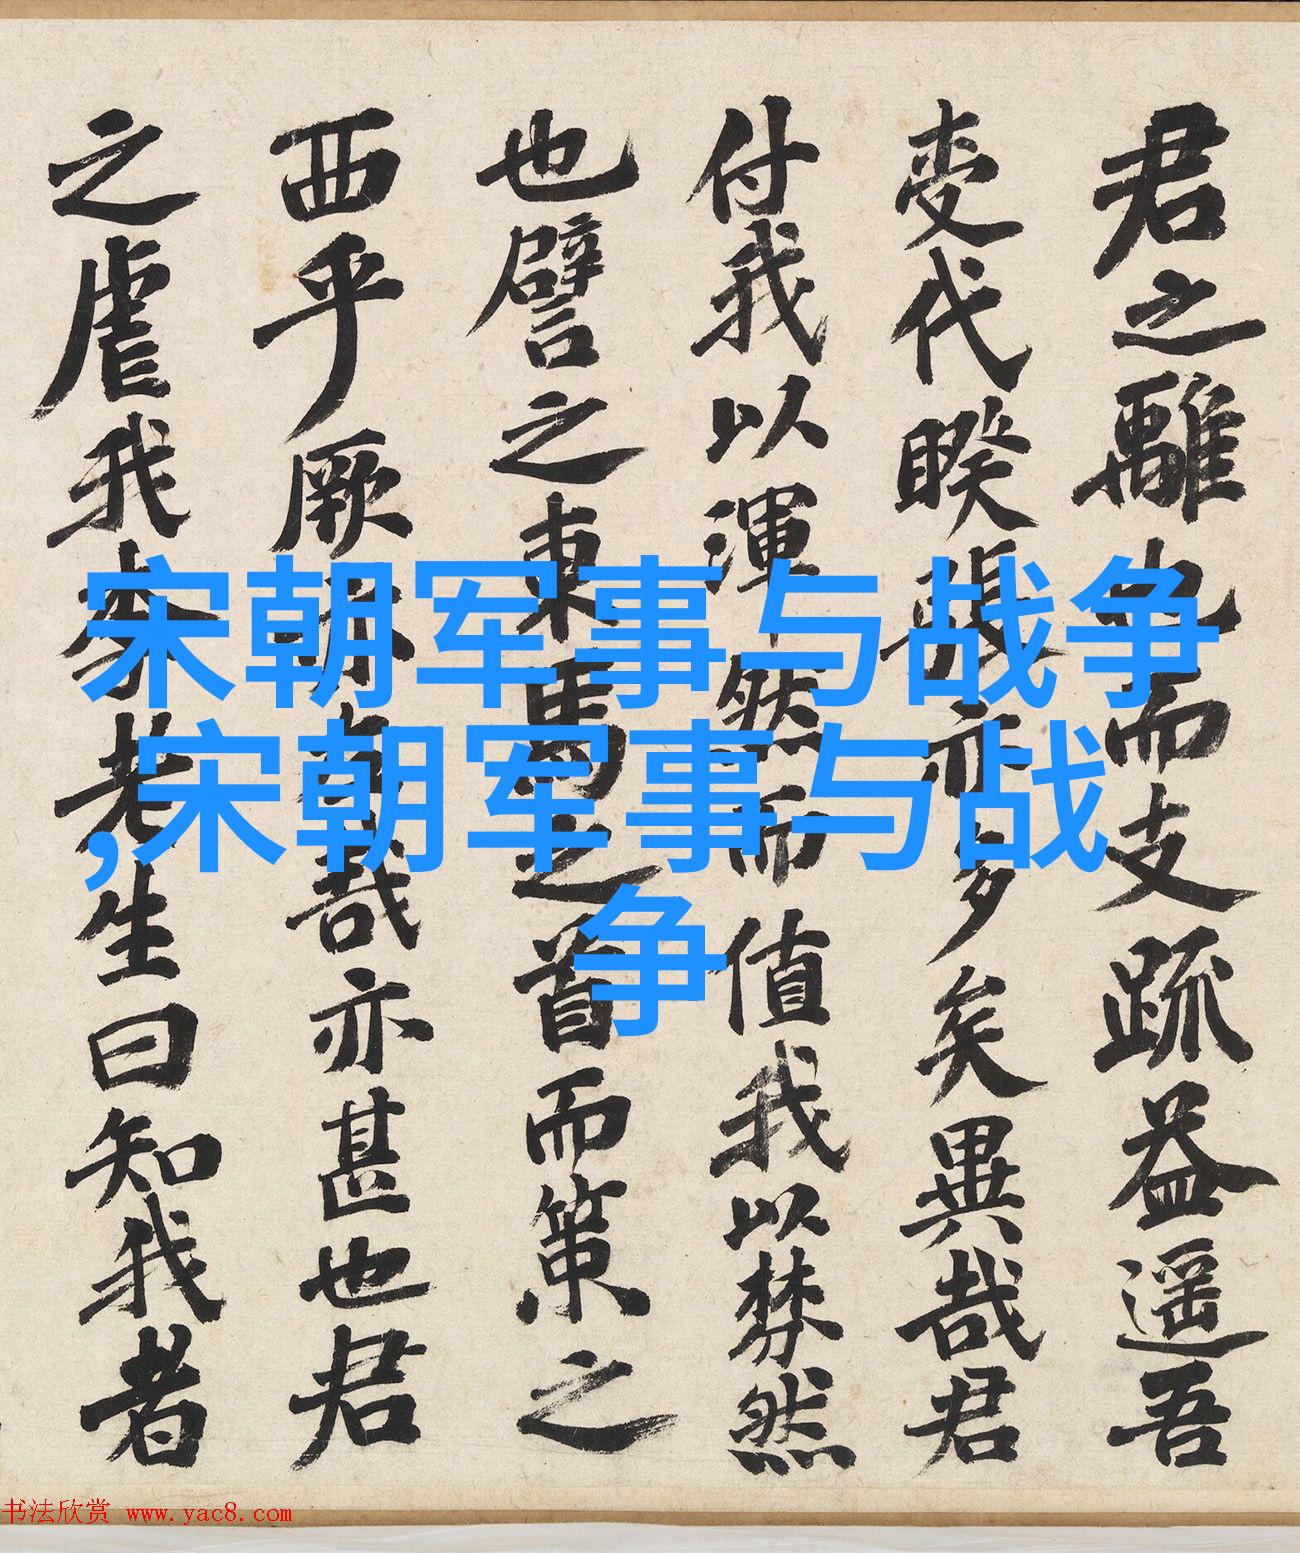 君之離也而支疏益遥吾
变代睽張亦多矣異哉君
付我以渾然而值我以棼然
也譬之東馬之首而策之
西乎厥亦哉亦甚也君
之虐我家老生曰知我者
宋朝军事与战争
,宋朝军事与战
争
书法欣赏 www.yac8.com